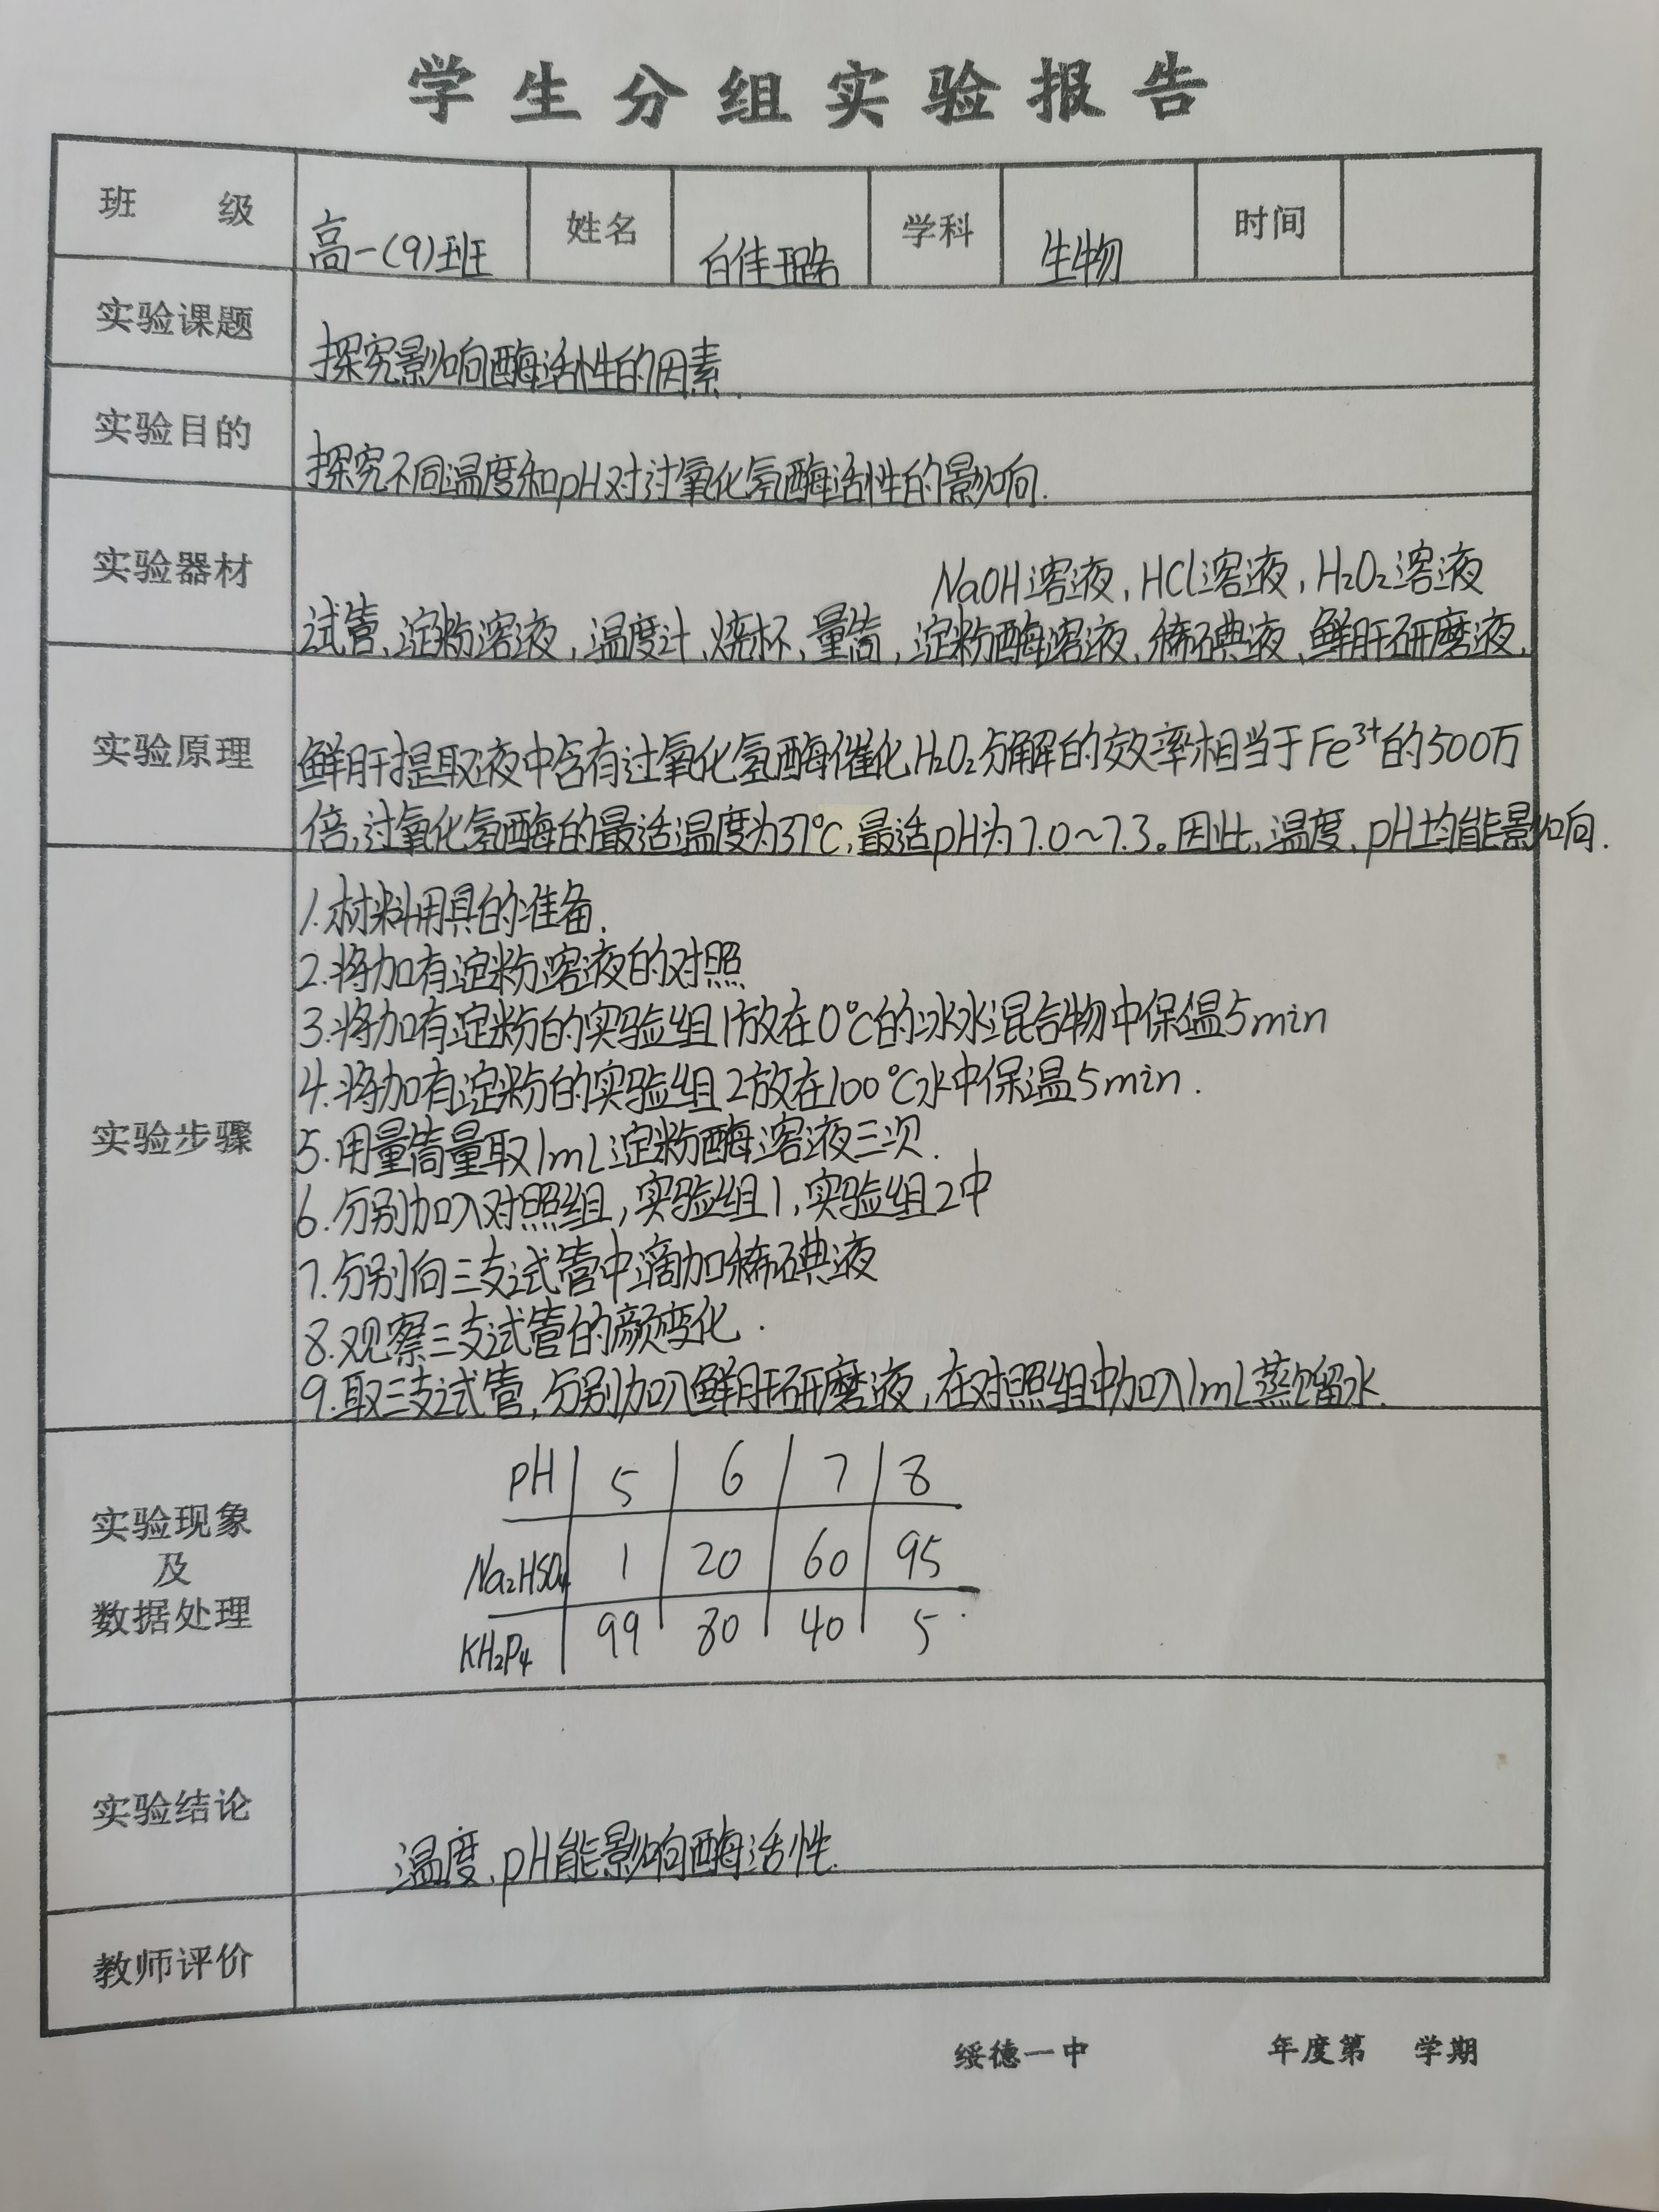 学生分组实验报告
班 级 高一(9)班 姓名 白佳璐 学科 生物 时间
实验课题 探究影响酶活性的因素.
实验目的 探究不同温度和pH对过氧化氢酶活性的影响.
NaOH溶液,HCl溶液,H₂O₂溶液
实验器材 试管、淀粉溶液,温度计、烧杯、量筒,淀粉酶溶液、稀碘液、鲜肝研磨液.
实验原理 鲜肝提取液中含有过氧化氢酶催化H₂O₂分解的效率相当于Fe³⁺的500万
倍,过氧化氢酶的最适温度为37℃,最适pH为7.0~7.3。因此,温度、pH均能影响.
1.材料用具的准备.
2.将加有淀粉溶液的对照
3.将加有淀粉的实验组1放在0℃的冰水混合物中保温5min
4.将加有淀粉的实验组2放在100℃水中保温5min.
实验步骤 5.用量筒量取1mL淀粉酶溶液三次.
6.分别加入对照组,实验组1,实验组2中
7.分别向三支试管中滴加稀碘液
8.观察三支试管的颜变化.
9.取三支试管,分别加入鲜肝研磨液,在对照组中加入1mL蒸馏水.
实验现象
及
数据处理
pH 5 6 7 8
Na₂HSO₄ 1 20 60 95
KH₂P₄ 99 80 40 5
实验结论 温度、pH能影响酶活性.
教师评价
绥德一中 年度第 学期